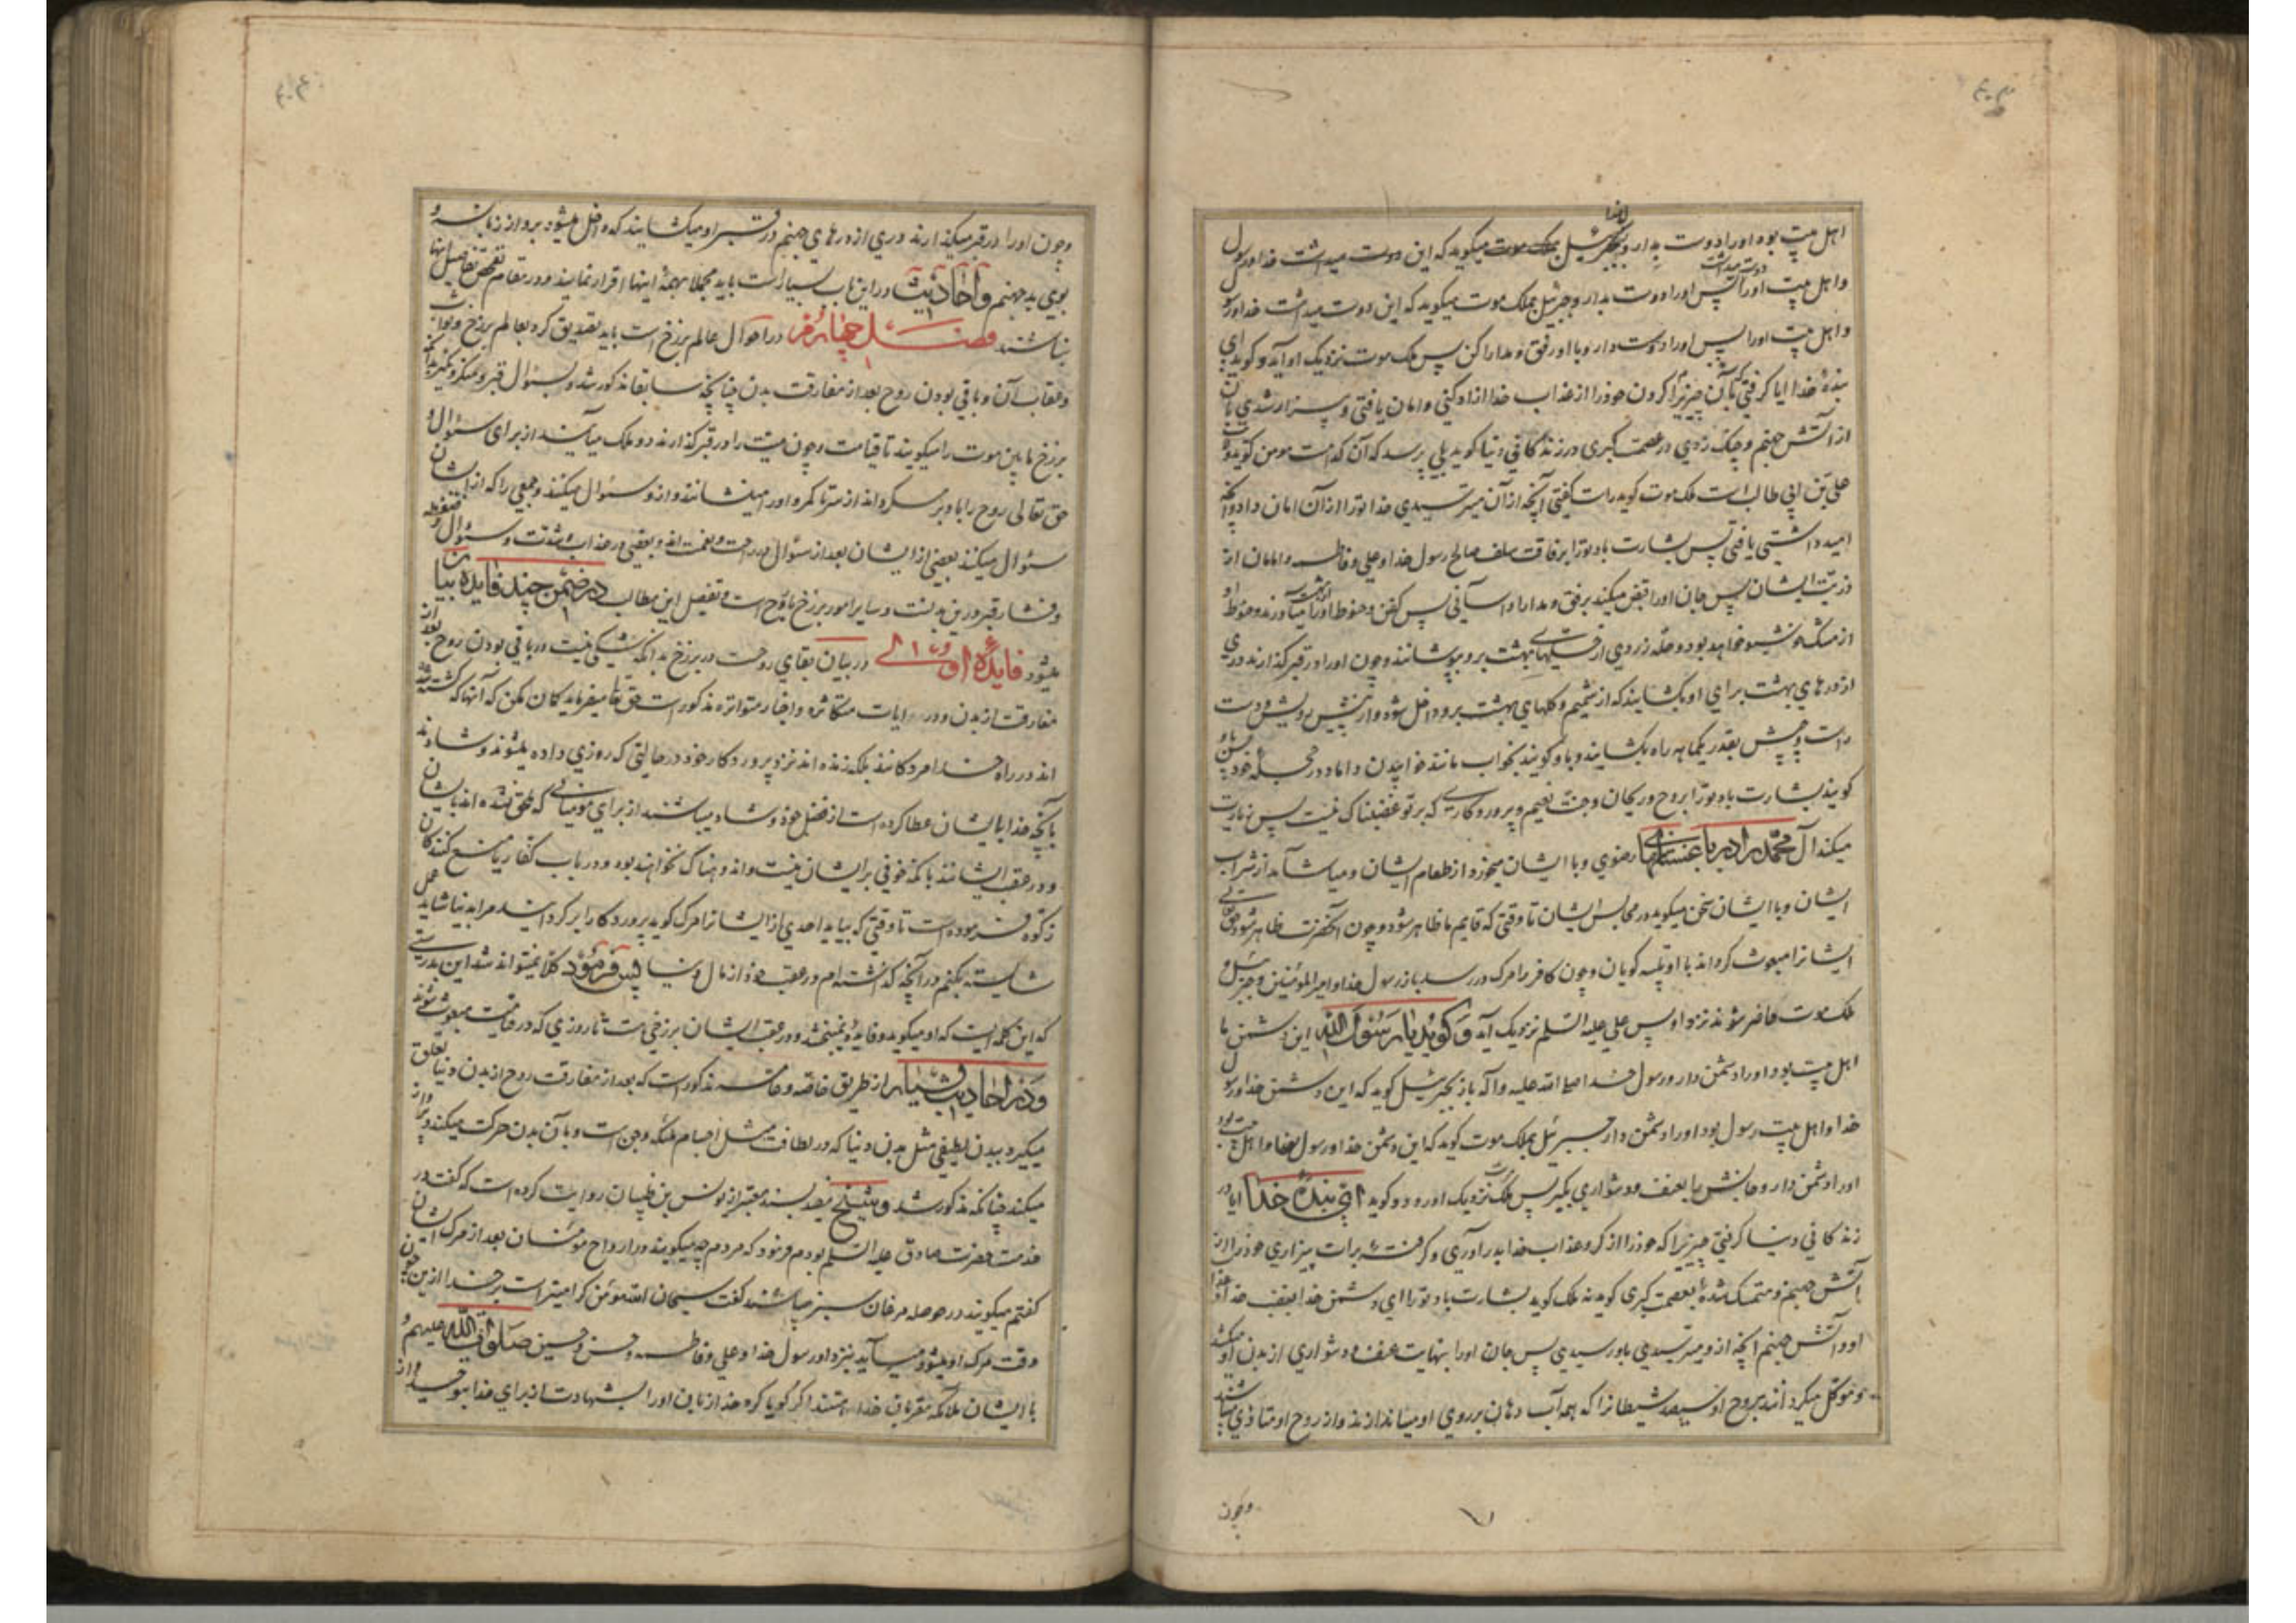 اهل بیت بوده او را دوست بدار و جبرئیل بملک موت میگوید که این دوست میداشت خدا و رسول
و اهل بیت او را پس او را دوست بدار و جبرئیل بملک موت میگوید که این دوست میداشت خدا و رسول
و اهل بیت او را پس او را دوست دار و با او رفق و مدارا کن پس ملک موت نزدیک او آید و گوید ای
بنده خدا ایا گرفتی آن چیزیرا که کردن خود را از عذاب خدا ازاد کنی و امان یافتی و بیزار شدی بآن
از آتش جهنم و چنک زدی در عصمت کبری در زندگانی دنیا گوید بلی پرسد که آن کدامست مومن گوید ولایت
علی بن ابی طالب است ملک موت گوید راست گفتی آنچه از آن میترسیدی خدا تو را از آن امان داد و آنچه
امید داشتی یافتی پس بشارت باد تو را برفاقت سلف صالح رسول خدا و علی و فاطمه و امامان از
ذریّت ایشان پس جان او را قبض میکند برفق و مدارا و آسانی پس کفن و حنوط او را از بهشت میآورند و حنوط او
از مشک خوشبو خواهد بود و حلّه زردی از حلّهای بهشت بر او میپوشانند و چون او را در قبر گذارند دری
از درهای بهشت برای او بگشایند که از شمیم و گلهای بهشت بر او داخل شود و از پیش رویش و دست
راست و چپش بقدر یکماهه راه بگشایند و باو گویند بخواب مانند خوابیدن داماد در حجله خود پس باو
گویند بشارت باد تو را بروح و ریحان و جنّت نعیم و پروردگاری که بر تو غضبناک نیست پس زیارت
میکند آل محمد را در باغستانهای رضوی و با ایشان میخورد از طعام ایشان و میآشامد از شراب
ایشان و با ایشان سخن میگوید در مجالس ایشان تا وقتی که قایم ما ظاهر شود و چون آنحضرت ظاهر شود حق تعالی
ایشانرا مبعوث گرداند با او تلبیه گویان و چون کافر را مرک در رسد باز رسول خدا و امیر المؤمنین و جبرئیل و
ملک موت حاضر شوند نزد او پس علی علیه السّلم نزدیک آید و گوید یا رسول الله این دشمن ما
اهل بیت بود او را دشمن دار و رسول خدا صلی الله علیه و آله باز بجبرئیل گوید که این دشمن خدا و رسول
خدا و اهل بیت رسول بود او را دشمن دار جبرئیل بملک موت گوید که این دشمن خدا و رسول خدا و اهل بیت بود
او را دشمن دار و جانش را بعنف و دشواری بگیر پس ملک موت نزدیک او رود و گوید ای بنده خدا ایا در
زندگانی دنیا گرفتی چیزیرا که خود را از گرو عذاب خدا بدر آوری و گرفته برات بیزاری خود را از
آتش جهنم و متمسک شده بعصمت کبری گوید نه ملک گوید بشارت باد تو را ای دشمن خدا بغضب خدا و عذاب
او و آتش جهنم آنچه از او میترسیدی باو رسیدی پس جان او را بنهایت عنف و دشواری از بدن او میکشد
و موکل میگردانند بروح او سیصد شیطانرا که همه آب دهان بر روی او میاندازند و از روح او متاذی میباشند
و چون
و چون او را در قبر میگذارند دری از درهای جهنم در قبر او میگشایند که داخل میشود بر او از زبانه و
بوی بد جهنم و احادیث در این باب بسیار است باید مجملا بهمهٔ اینها اقرار نمایند و در مقام تفحص تفاصیل اینها
نباشند فصل چهارم در احوال عالم برزخ است باید تصدیق کرد بعالم برزخ و ثواب
و عقاب آن و باقی بودن روح بعد از مفارقت بدن چنانچه سابقا مذکور شد و بسؤال قبر و منکر و نکیر بدانکه
برزخ ما بین موت را میگویند تا قیامت و چون میّت را در قبر گذارند دو ملک میآیند از برای سئوال و
حق تعالی روح را باو بر میگرداند از سر تا کمر و او را مینشانند و از او سئوال میکنند و جمعی را که از ایشان
سئوال میکنند بعضی از ایشان بعد از سئوال در راحت و نعمت اند و بعضی در عذاب و شدّت و سئوال و ضغطه
و فشار قبر در این بدنست و سایر امور برزخ با روح است و تفصیل این مطالب در ضمن چند فایده بیان
میشود فایدهٔ اولی در بیان بقای روحست در برزخ بدانکه شکی نیست در باقی بودن روح بعد از
مفارقت از بدن و در ایات متکاثره و اخبار متواتره مذکور است حق تعالی میفرماید گمان مکن که آنها که کشته شده
اند در راه خدا مردگانند بلکه زنده اند نزد پروردگار خود در حالتی که روزی داده میشوند و شادند
بآنچه خدا بایشان عطا کرده است از فضل خود و شاد میباشند از برای مومنانی که ملحق نشده اند بایشان
و در عقب ایشانند بآنکه خوفی بر ایشان نیست و اندوهناک نخواهند بود و در باب کفار و منع کنندگان
زکوه فرموده است تا وقتی که بیاید احدی از ایشانرا مرک گوید پروردگارا برگردانید مرا بدنیا شاید عمل
شایسته بکنم در آنچه گذاشته ام در عقب خود از مال دنیا پس فرمود کلّا نمیتواند شد این بدرستی
که این کلمه ایست که او میگوید و فایده نمیبخشد و در عقب ایشان برزخی هست تا روزی که در قیامت مبعوث شوند
و در احادیث بسیار از طریق خاصّه و عامّه مذکور است که بعد از مفارقت روح از بدن دنیا تعلق
میگیرد ببدن لطیفی مثل بدن دنیا که در لطافت مثل اجسام ملئکه و جن است و بآن بدن حرکت میکند و پرواز
میکند چنانکه مذکور شد و شیخ مفید بسند معتبر از یونس بن ظبیان روایت کرده است که گفت در
خدمت حضرت صادق علیه السّلم بودم فرمود که مردم چه میگویند در ارواح مومنان بعد از مرک ایشان
گفتم میگویند در حوصله مرغان سبز میباشند گفت سبحان الله مؤمن گرامیتر است بر خدا از این چون
وقت مرک او میشود میآید بنزد او رسول خدا و علی و فاطمه و حسن و حسین صلوات الله علیهم و
با ایشان ملائکه مقربان خدا هستند اگر گویا کرد خدا زبان او را بشهادت از برای خدا بتوحید و از